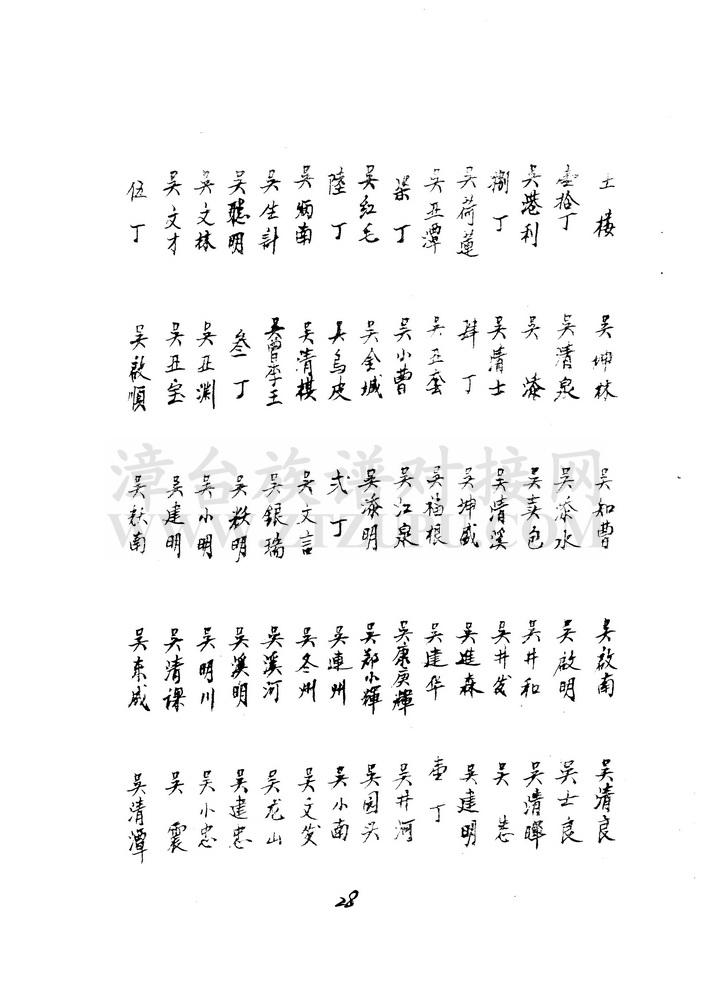 土楼
壹拾丁
吴港利
捌丁
吴荷莲
吴亚潭
柒丁
吴红毛
陸丁
吴炳南
吴生計
吴聰明
吴文林
吴文才
伍丁
吴坤林
吴清泉
吴漆
吴清士
肆丁
吴亚套
吴小曹
吴金城
吴乌皮
吴清棋
吴曾李王
叁丁
吴亚渊
吴亚宝
吴啟順
吴知曹
吴添水
吴卖包
吴清溪
吴坤盛
吴福根
吴江泉
吴海明
弍丁
吴文言
吴銀瑞
吴明
吴小明
吴建明
吴秋南
吴啟南
吴啟明
吴井和
吴井发
吴進森
吴建华
吴康庚輝
吴郑小輝
吴連州
吴冬州
吴溪河
吴溪明
吴明川
吴清课
吴东成
吴清良
吴士良
吴清暉
吴
吴建明
壹丁
吴井河
吴园兴
吴小南
吴文笑
吴龙山
吴建忠
吴小忠
吴震
吴清潭
漳台族谱对接网
WWW.ZTZUPU.COM
28